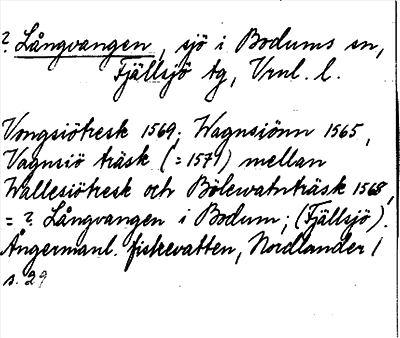 ? Långvangen, sjö i Bodums sn,
Fjällsjö tg, Vrnl. l.
Vongsiötresk 1569. Wagnsiönn 1565,
Vagnsiö träsk (:=1571) mellan
Wallesiötresk och Bölewatnträsk 1568,
= ? Långvangen i Bodum; (Fjällsjö).
Ångermanl. fiskevatten, Nordlander 1
s. 29